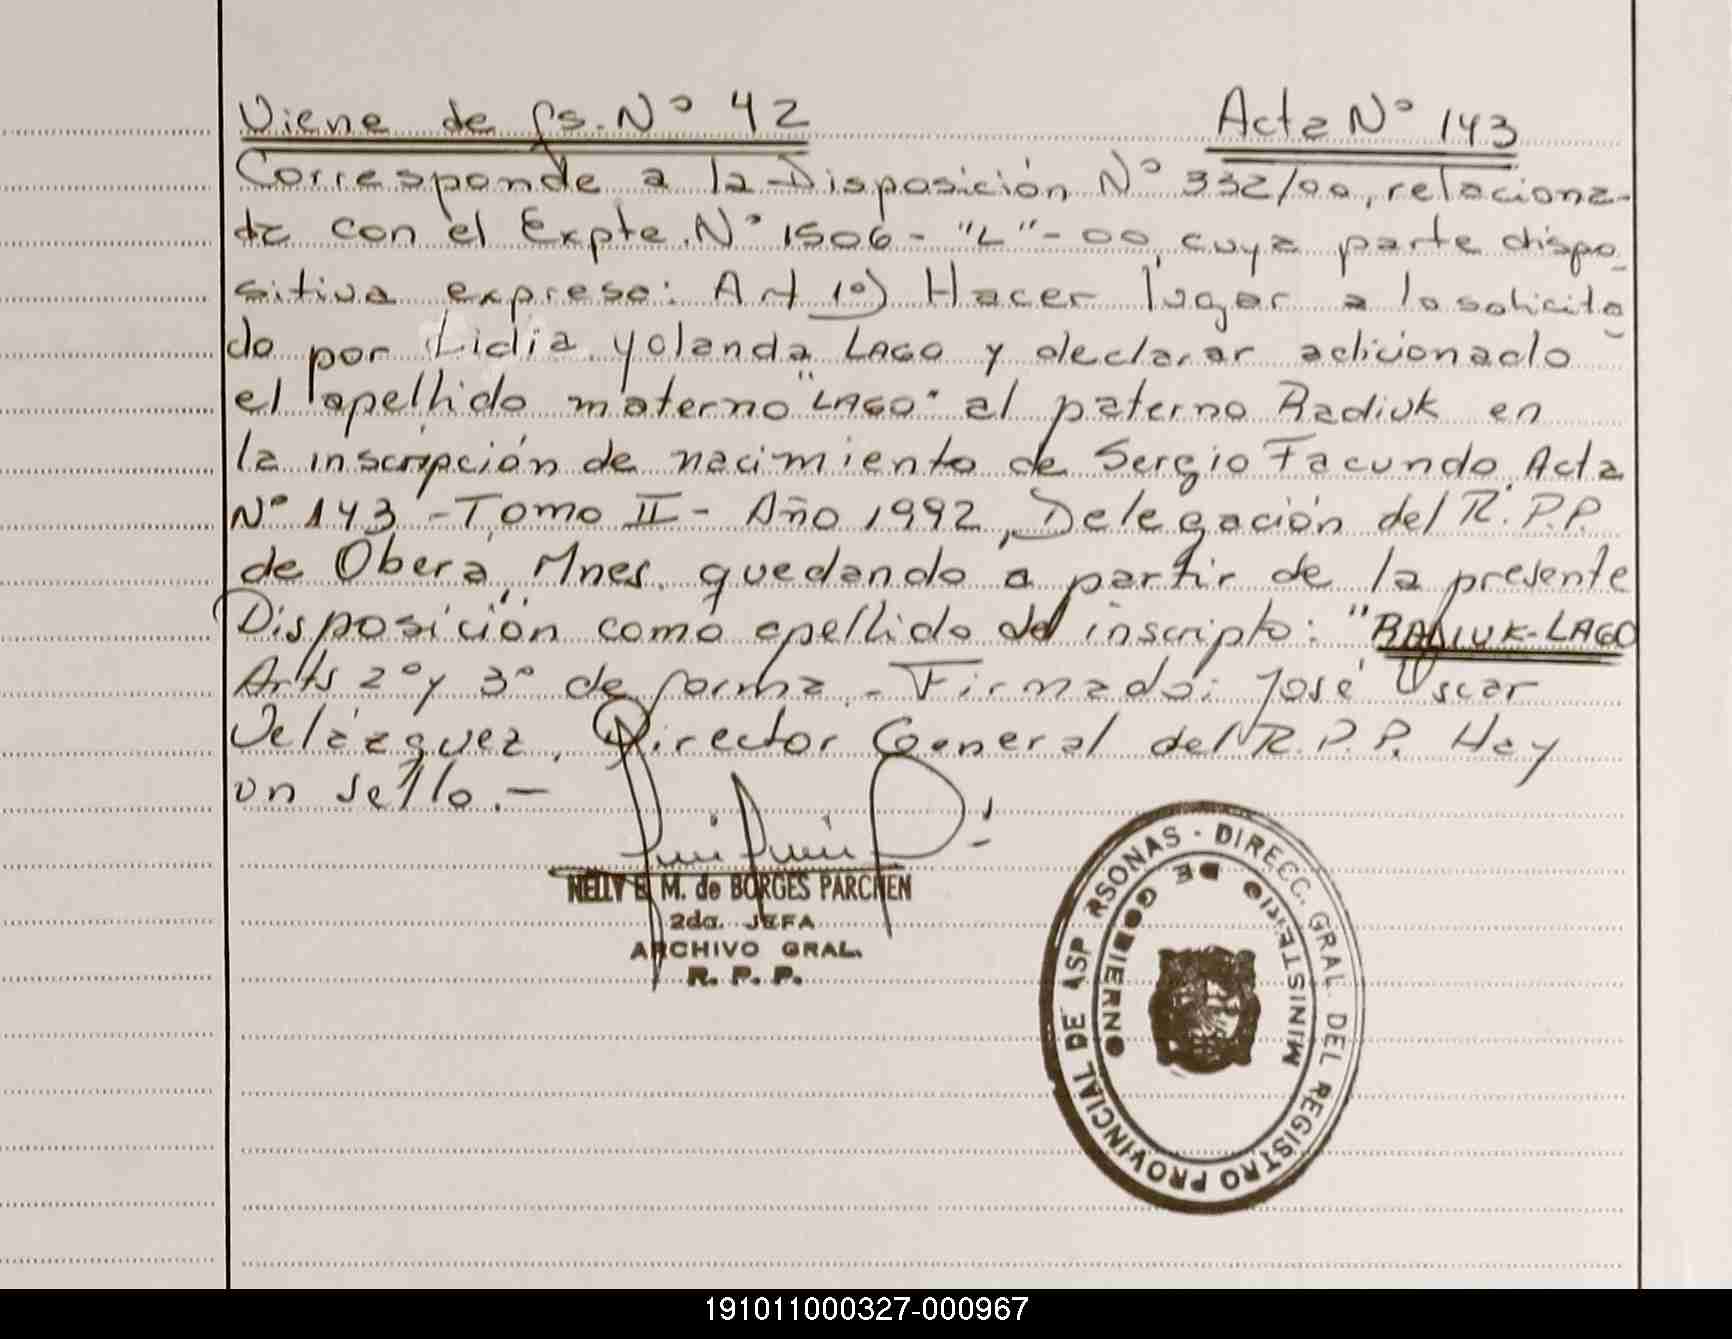 Viene de fs. Nº 42
Acta Nº 143
Corresponde a la Disposición Nº 332/00, relaciona-
da con el Expte. Nº 1506-"L"-00, cuya parte dispo
sitiva expresa: Art 1º) Hacer lugar a lo solicita
do por Lidia Yolanda LAGO y declarar adicionado
el apellido materno "LAGO" al paterno Radiuk en
la inscripción de nacimiento de Sergio Facundo, Acta
Nº 143 - Tomo II - Año 1992, Delegación del R.P.P.
de Oberá, Mnes. quedando a partir de la presente
Disposición como apellido del inscripto: "RADIUK-LAGO
Arts 2º y 3º de forma. - Firmado: José Oscar
Velázquez, Director General del R.P.P. Hay
un sello.-
NELLY E. M. de BORGES PARCHEN
2da. JEFA
ARCHIVO GRAL.
R. P. P.
DIRECC. GRAL. DEL REGISTRO PROVINCIAL DE ASP RSONAS ·
MINISTERIO DE GOBIERNO
191011000327-000967